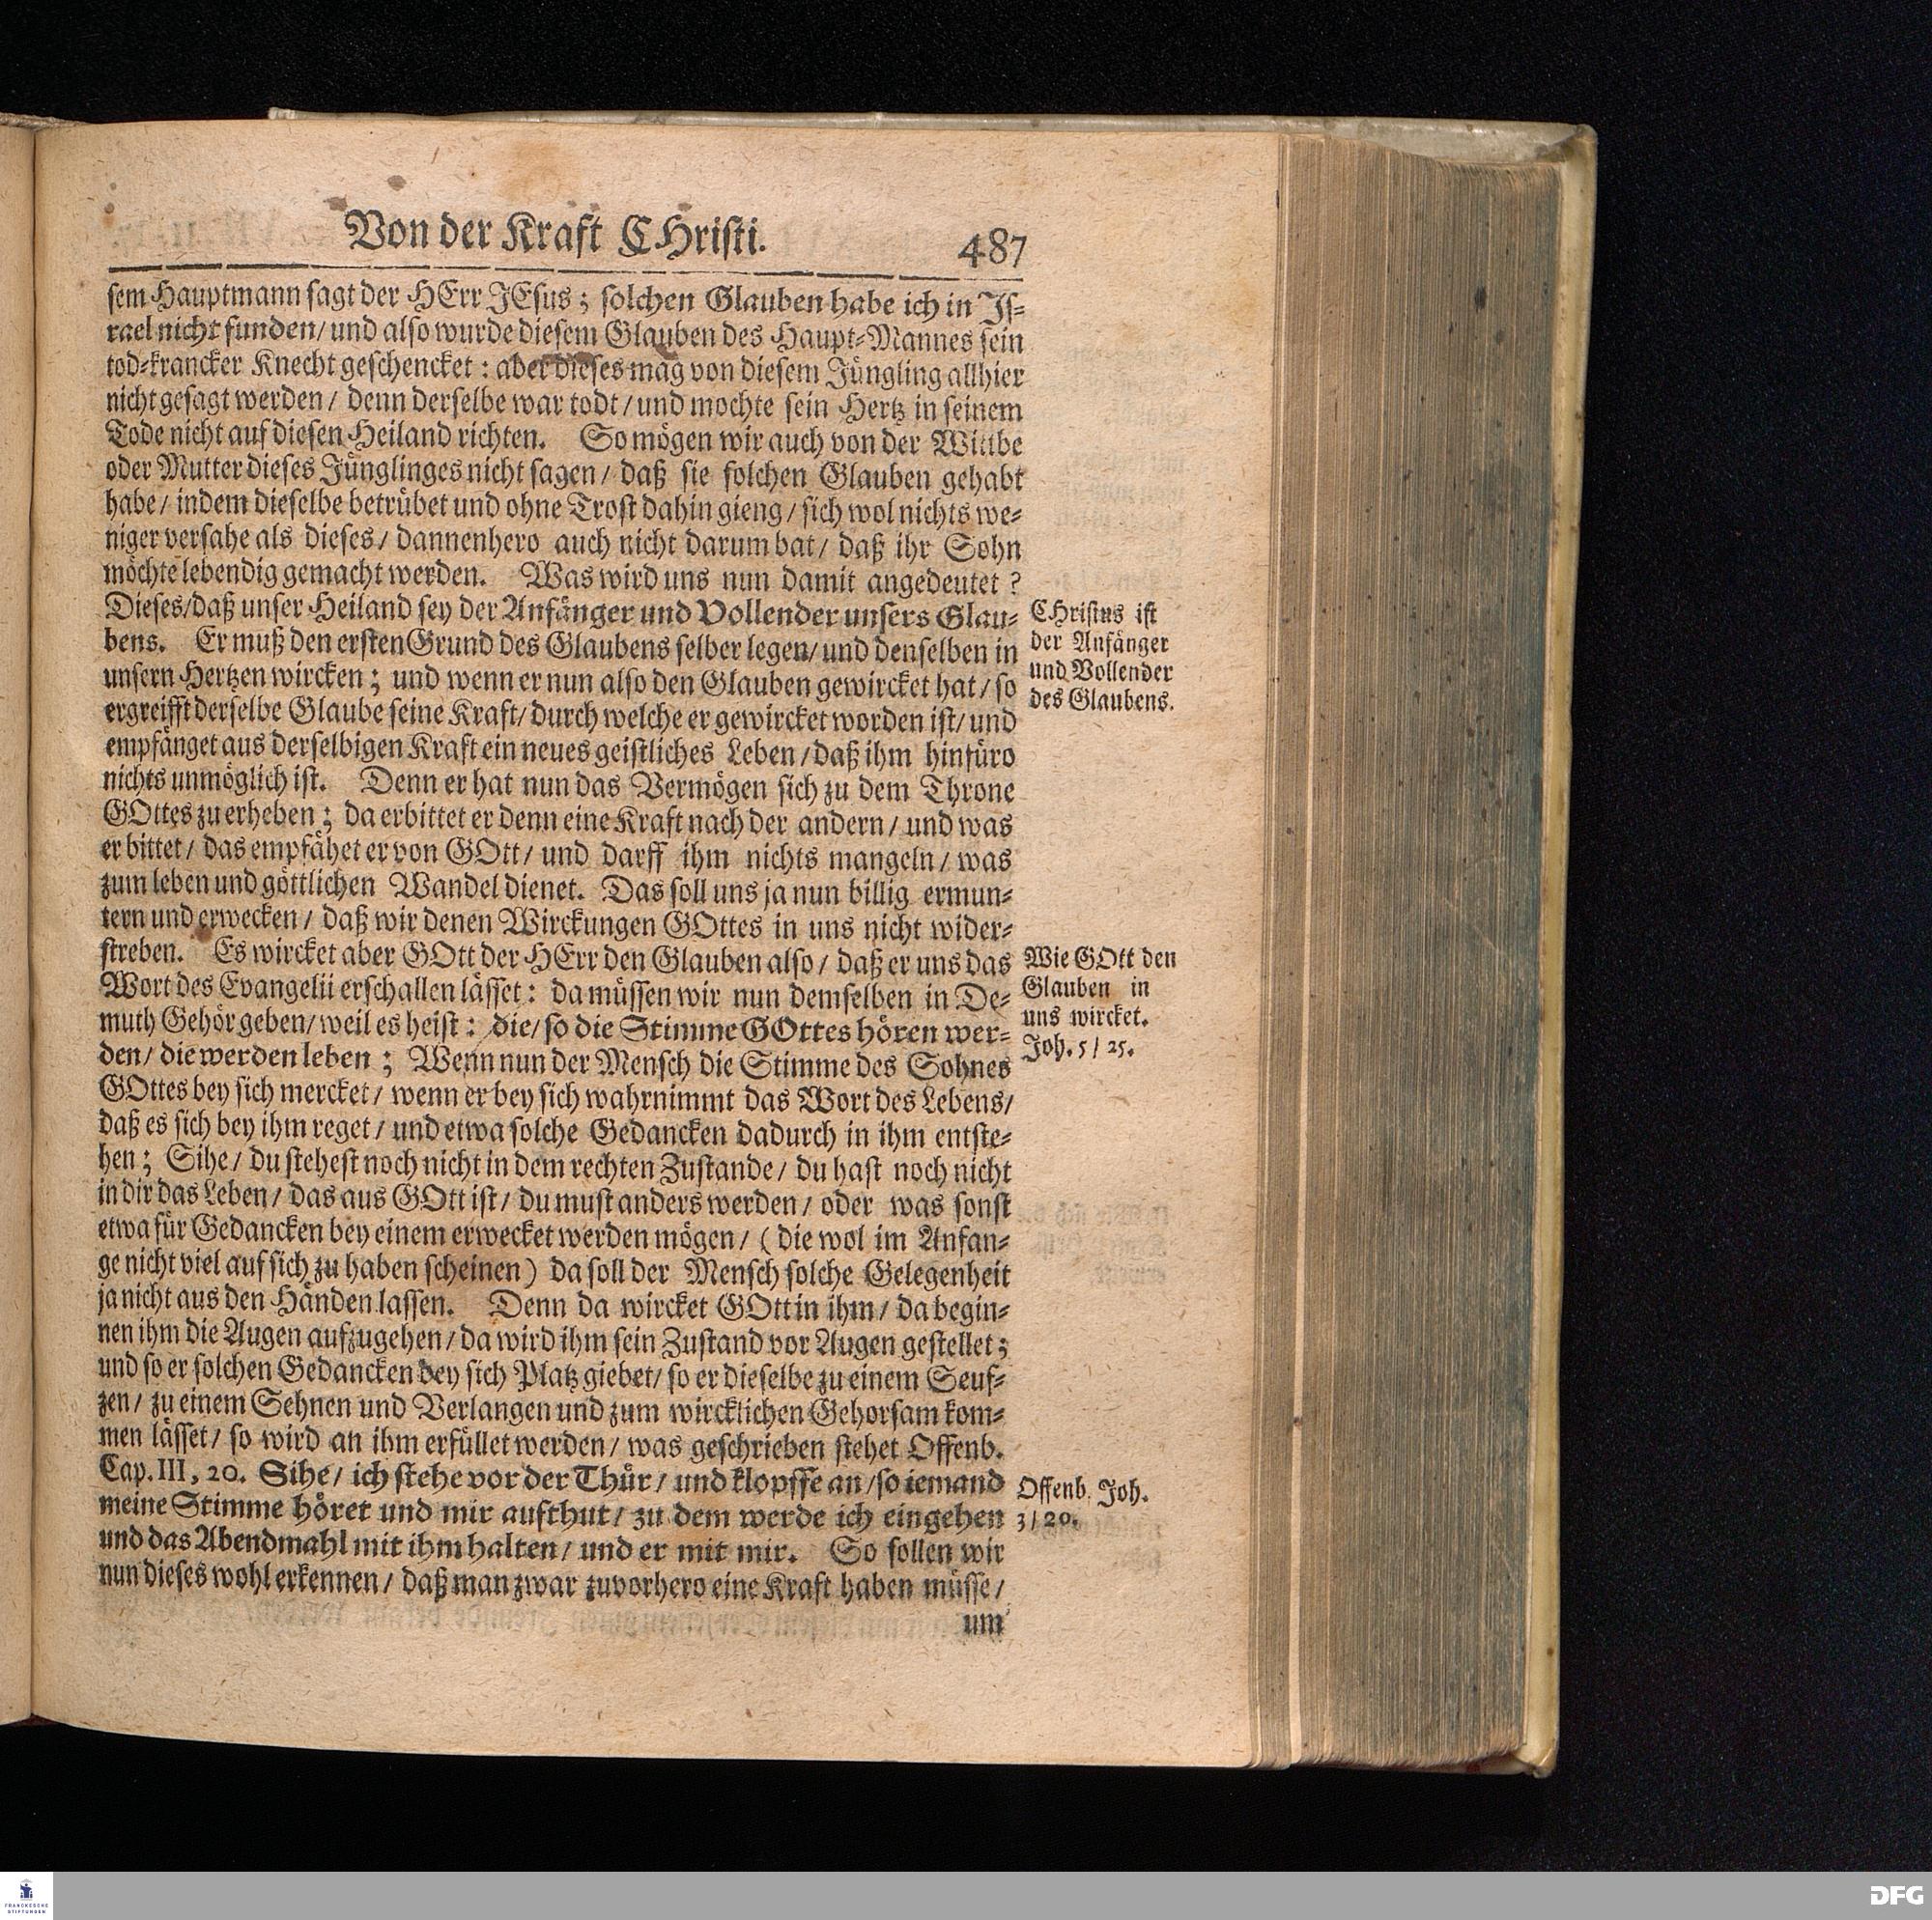 Von der Kraft CHristi.
487
sem Hauptmann sagt der HErr JEsus; solchen Glauben habe ich in Is-
rael nicht funden/ und also wurde diesem Glauben des Haupt-Mannes sein
tod-krancker Knecht geschencket: aber dieses mag von diesem Jüngling allhier
nicht gesagt werden/ denn derselbe war todt/ und mochte sein Hertz in seinem
Tode nicht auf diesen Heiland richten. So mögen wir auch von der Wittbe
oder Mutter dieses Jünglinges nicht sagen/ daß sie solchen Glauben gehabt
habe/ indem dieselbe betrübet und ohne Trost dahin gieng/ sich wol nichts we-
niger versahe als dieses/ dannenhero auch nicht darum bat/ daß ihr Sohn
möchte lebendig gemacht werden. Was wird uns nun damit angedeutet?
Dieses/ daß unser Heiland sey der Anfänger und Vollender unsers Glau-
bens. Er muß den ersten Grund des Glaubens selber legen/ und denselben in
unsern Hertzen wircken; und wenn er nun also den Glauben gewircket hat/ so
ergreifft derselbe Glaube seine Kraft/ durch welche er gewircket worden ist/ und
empfänget aus derselbigen Kraft ein neues geistliches Leben/ daß ihm hinfüro
nichts unmöglich ist. Denn er hat nun das Vermögen sich zu dem Throne
GOttes zu erheben; da erbittet er denn eine Kraft nach der andern/ und was
er bittet/ das empfähet er von GOtt/ und darff ihm nichts mangeln/ was
zum leben und göttlichen Wandel dienet. Das soll uns ja nun billig ermun-
tern und erwecken/ daß wir denen Wirckungen GOttes in uns nicht wider-
streben. Es wircket aber GOtt der HErr den Glauben also/ daß er uns das
Wort des Evangelii erschallen lässet: da müssen wir nun demselben in De-
muth Gehör geben/ weil es heist: die/ so die Stimme GOttes hören wer-
den/ die werden leben; Wenn nun der Mensch die Stimme des Sohnes
GOttes bey sich mercket/ wenn er bey sich wahrnimmt das Wort des Lebens/
daß es sich bey ihm reget/ und etwa solche Gedancken dadurch in ihm entste-
hen; Sihe/ du stehest noch nicht in dem rechten Zustande/ du hast noch nicht
in dir das Leben/ das aus GOtt ist/ du must anders werden/ oder was sonst
etwa für Gedancken bey einem erwecket werden mögen/ (die wol im Anfan-
ge nicht viel auf sich zu haben scheinen) da soll der Mensch solche Gelegenheit
ja nicht aus den Händen lassen. Denn da wircket GOtt in ihm/ da begin-
nen ihm die Augen aufzugehen/ da wird ihm sein Zustand vor Augen gestellet;
und so er solchen Gedancken bey sich Platz giebet/ so er dieselbe zu einem Seuf-
zen/ zu einem Sehnen und Verlangen und zum wircklichen Gehorsam kom-
men lässet/ so wird an ihm erfüllet werden/ was geschrieben stehet Offenb.
Cap. III, 20. Sihe/ ich stehe vor der Thür/ und klopffe an/ so iemand
meine Stimme höret und mir aufthut/ zu dem werde ich eingehen
und das Abendmahl mit ihm halten/ und er mit mir. So sollen wir
nun dieses wohl erkennen/ daß man zwar zuvorhero eine Kraft haben müsse/
um
CHristus ist
der Anfänger
und Vollender
des Glaubens.
Wie GOtt den
Glauben in
uns wircket.
Joh. 5/ 25.
Offenb. Joh.
3/ 20.
FRANCKESCHE
STIFTUNGEN
DFG